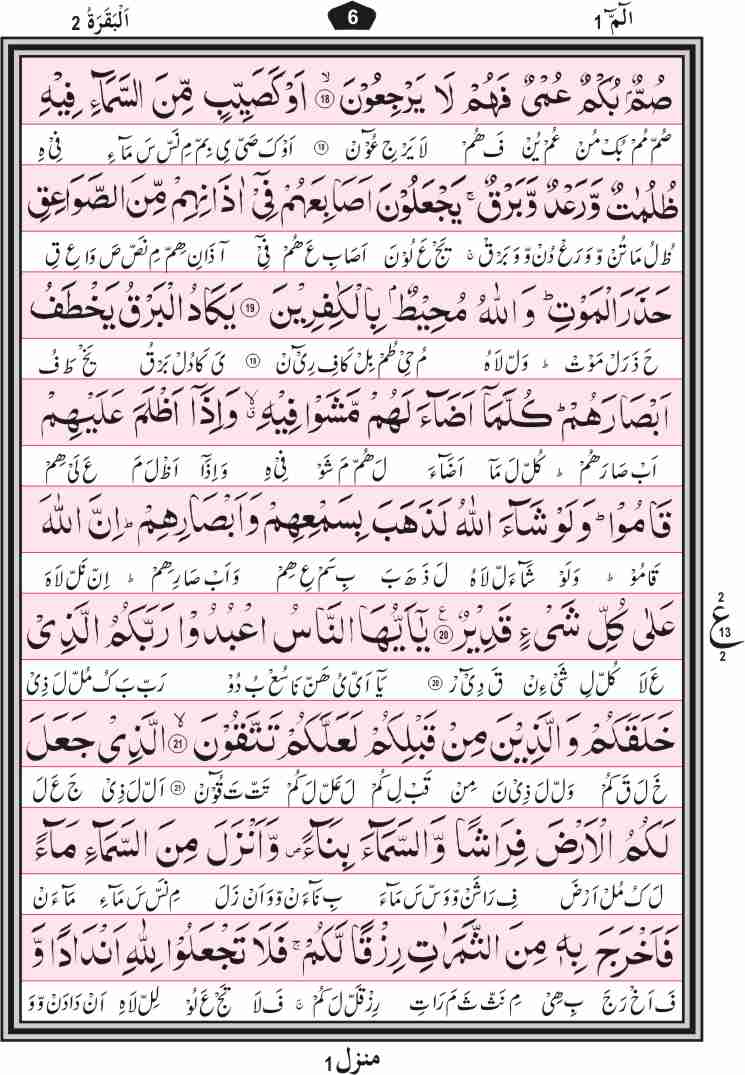 الٓمّٓ 1
6
اَلْبَقَرَةُ 2
صُمٌّۢ بُكْمٌ عُمْیٌ فَهُمْ لَا یَرْجِعُوْنَ ۙ 18 اَوْ كَصَیِّبٍ مِّنَ السَّمَآءِ فِیْهِ
صُمّ مُمْ بُكْ مُنْ عُمْ یُنْ فَ هُمْ لَا یَرْ جِ عُوْٓنْ 18 اَوْ كَ صَیّ یِ بِمْ مِ نَسّ سَ مَآءِ فِیْ هِ
ظُلُمٰتٌ وَّرَعْدٌ وَّبَرْقٌ ۚ یَجْعَلُوْنَ اَصَابِعَهُمْ فِیْۤ اٰذَانِهِمْ مِّنَ الصَّوَاعِقِ
ظُ لُ مَا تُنْ وّ وَ رَعْ دُنْ وّ وَ بَرْقْ ۚ یَجْ عَ لُوْ نَ اَصَابِ عَ هُمْ فِیْٓ آ ذَانِ هِمّ مِ نَصّ صَ وَا عِ قِ
حَذَرَ الْمَوْتِ ؕ وَ اللّٰهُ مُحِیْطٌۢ بِالْكٰفِرِیْنَ 19 یَكَادُ الْبَرْقُ یَخْطَفُ
حَ ذَرَلْ مَوْتْ ؕ وَلّ لَاهُ مُ حِیْ طُمْ بِلْ كَافِ رِیْٓنْ 19 یَ كَادُلْ بَرْقُ یَخْ طَ فُ
اَبْصَارَهُمْ ؕ كُلَّمَاۤ اَضَآءَ لَهُمْ مَّشَوْا فِیْهِ ۙ وَ اِذَاۤ اَظْلَمَ عَلَیْهِمْ
اَبْ صَارَ هُمْ ؕ كُلّ لَ مَآ اَضَآءَ لَ هُمْ مَ شَوْ فِیْ هِ وَ اِذَآ اَظْ لَ مَ عَ لَیْ هِمْ
قَامُوْا ؕ وَ لَوْ شَآءَ اللّٰهُ لَذَهَبَ بِسَمْعِهِمْ وَ اَبْصَارِهِمْ ؕ اِنَّ اللّٰهَ
قَا مُوْ ؕ وَلَوْ شَآءَلّ لَاهُ لَ ذَهَ بَ بِ سَمْ عِ هِمْ وَ اَبْ صَارِ هِمْ ؕ اِنّ نَلّ لَاهَ
عَلٰی كُلِّ شَیْءٍ قَدِیْرٌ 20 یٰۤاَیُّهَا النَّاسُ اعْبُدُوْا رَبَّكُمُ الَّذِیْ
عَ لَا كُلّ لِ شَیْ ءِنْ قَ دِیْٓرْ 20 یَآ اَیّ یُ هَنّ نَا سُعْ بُ دُوْ رَبّ بَ كُ مُلّ لَ ذِیْ
ع 2 13 2
خَلَقَكُمْ وَ الَّذِیْنَ مِنْ قَبْلِكُمْ لَعَلَّكُمْ تَتَّقُوْنَ ۙ 21 الَّذِیْ جَعَلَ
خَ لَ قَ كُمْ وَلّ لَ ذِیْ نَ مِنْ قَبْ لِ كُمْ لَ عَلّ لَ كُمْ تَتّ تَ قُوْٓنْ 21 اَلّ لَ ذِیْ جَ عَ لَ
لَكُمُ الْاَرْضَ فِرَاشًا وَّ السَّمَآءَ بِنَآءً ۪ وَّ اَنْزَلَ مِنَ السَّمَآءِ مَآءً
لَ كُ مُلْ اَرْضَ فِ رَا شَنْ وّ وَسّ سَ مَآءَ بِ نَآءَنْ وّ وَ اَنْ زَلَ مِ نَسّ سَ مَآءِ مَآءَنْ
فَاَخْرَجَ بِهٖ مِنَ الثَّمَرٰتِ رِزْقًا لَّكُمْ ۚ فَلَا تَجْعَلُوْا لِلّٰهِ اَنْدَادًا وَّ
فَ اَخْ رَجَ بِ هِیْ مِ نَثّ ثَ مَ رَاتِ رِزْ قَلّ لَ كُمْ ۚ فَ لَا تَجْ عَ لُوْ لِلّ لَاهِ اَنْ دَادَنْ وّ وَ
منزل 1